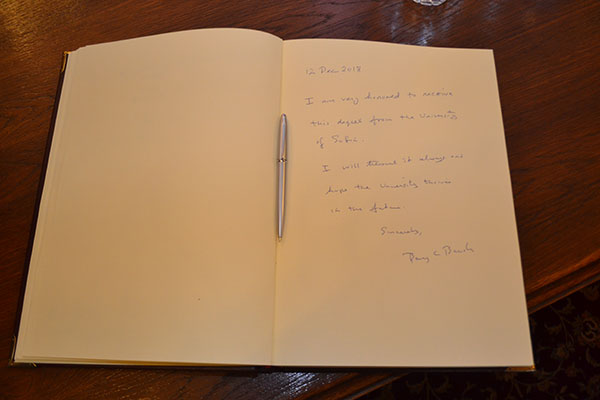 12 Dec 2018
I am very honored to receive
this degree from the University
of Sofia.
I will treasure it always and
hope the University thrives
in the future.
Sincerely,
Barry C Barish